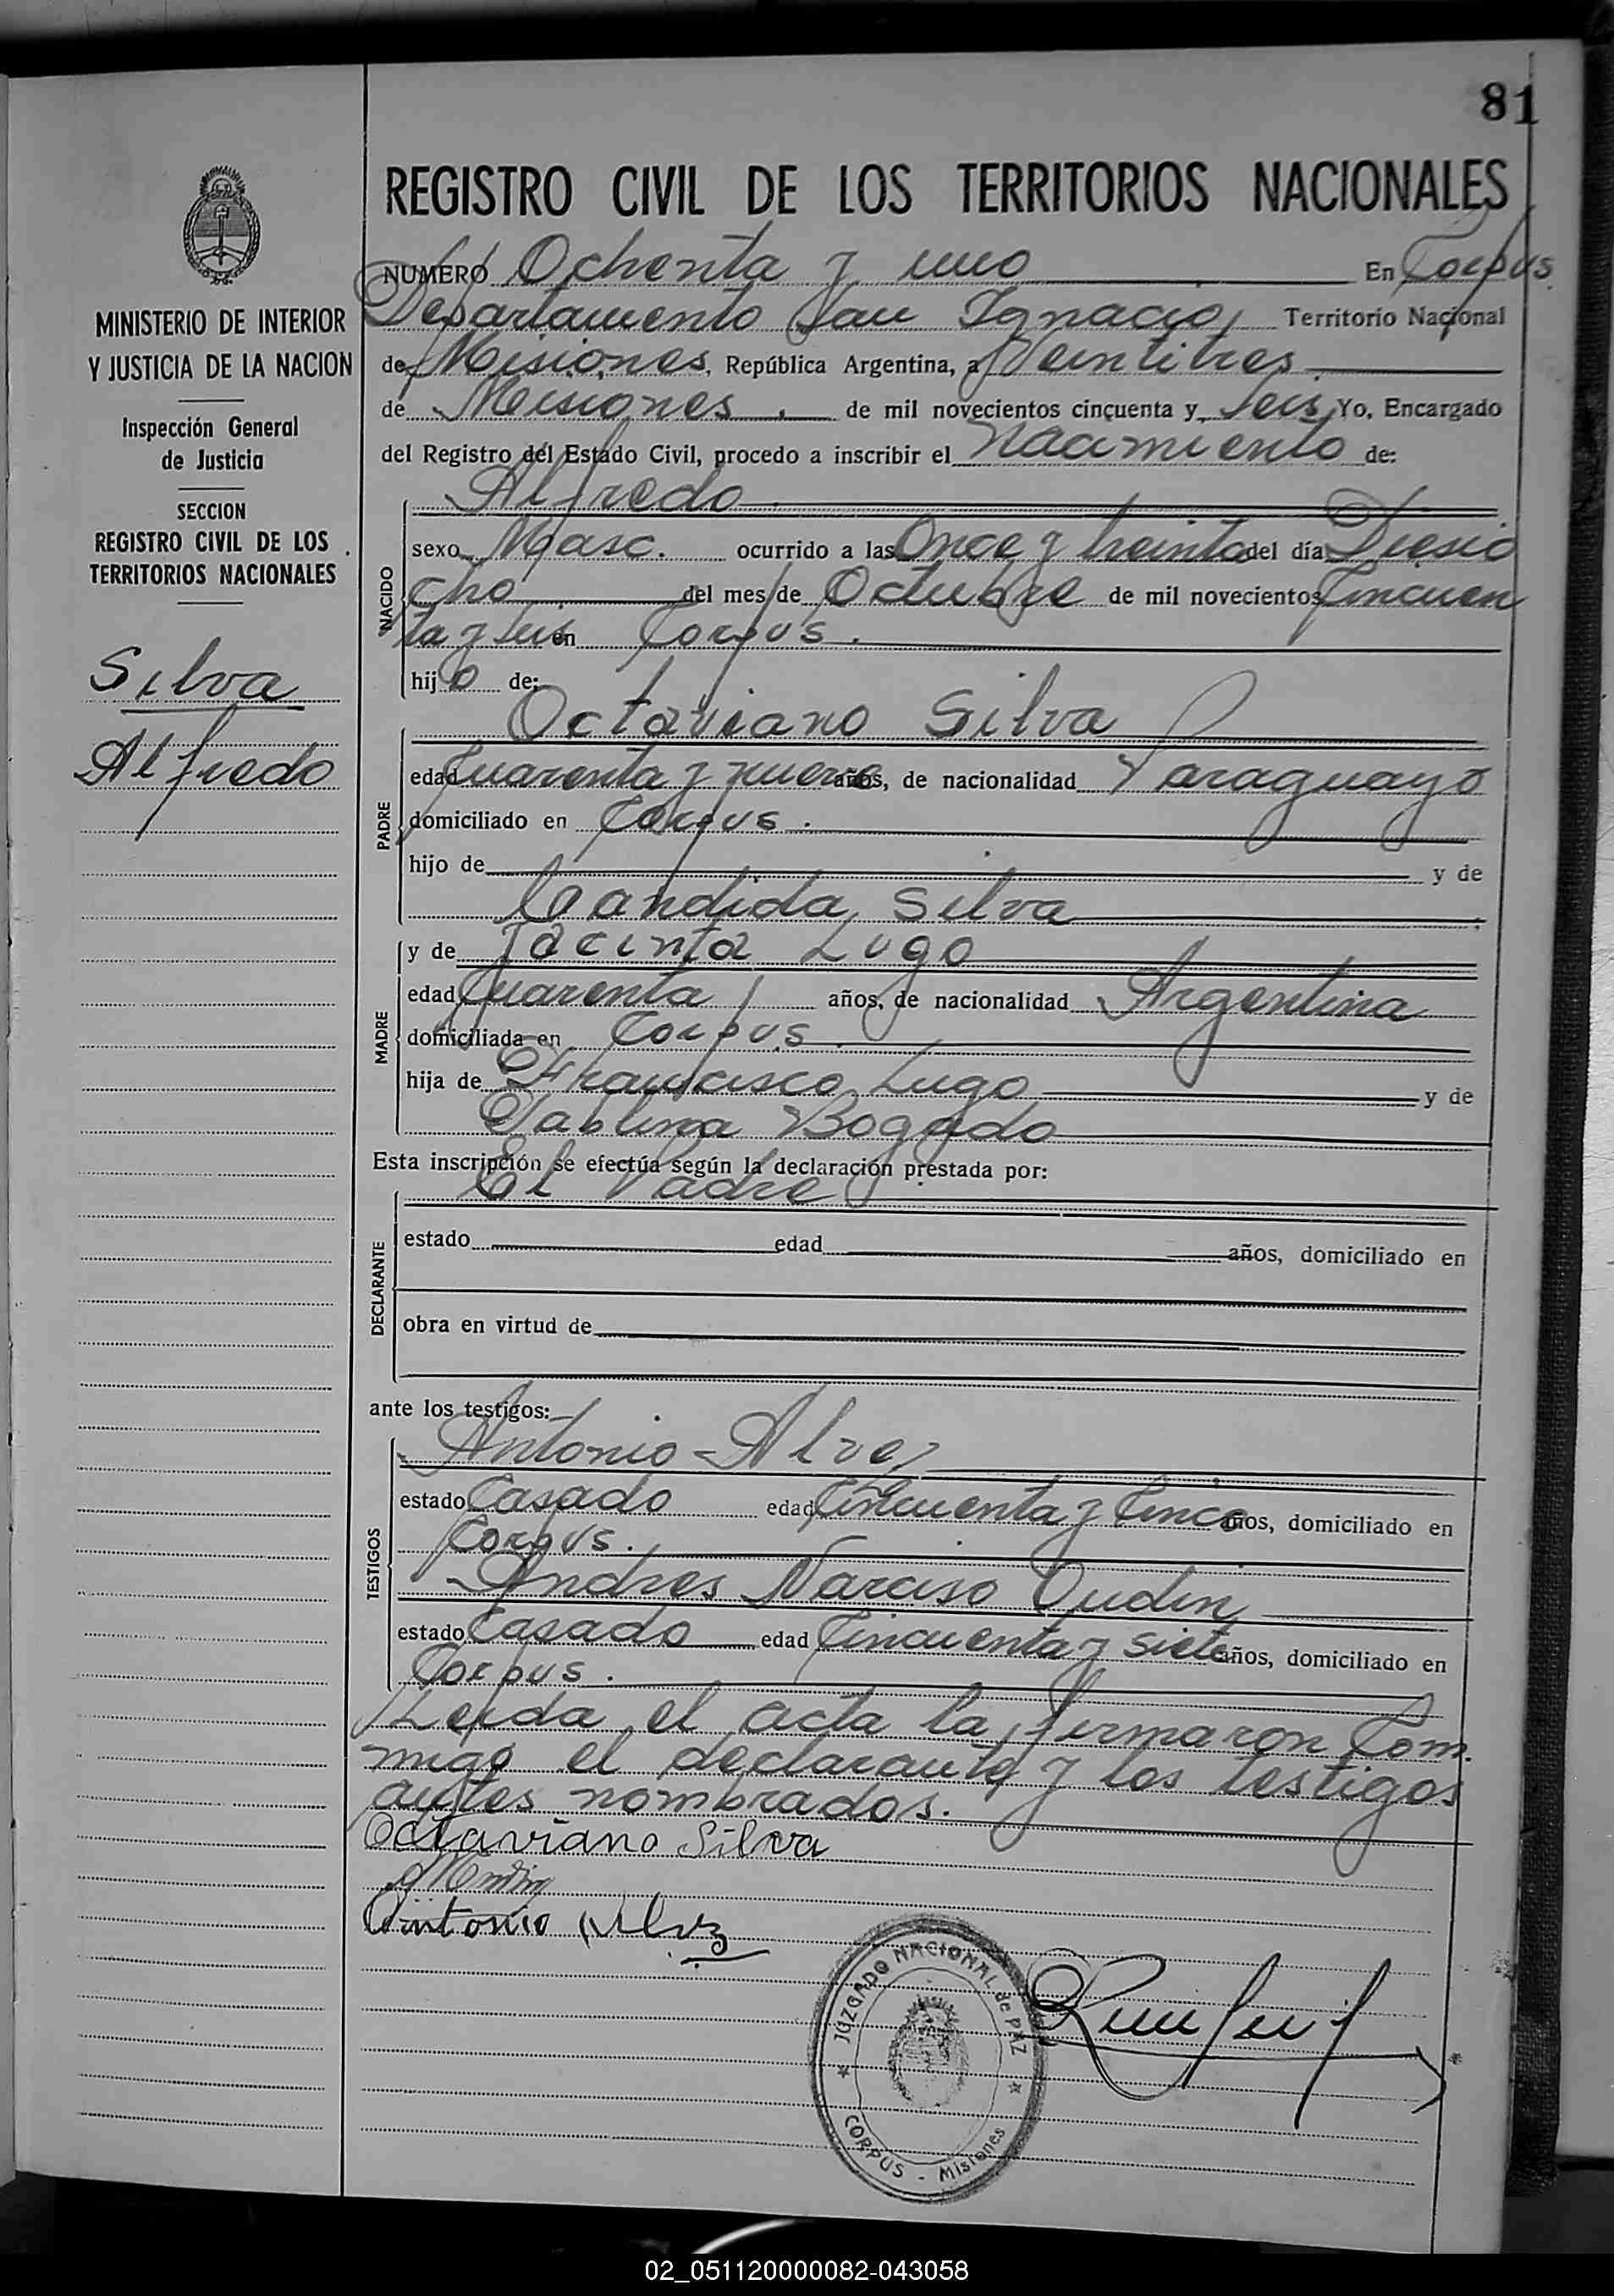 81
REGISTRO CIVIL DE LOS TERRITORIOS NACIONALES
NUMERO Ochenta y uno En Corpus
Departamento San Ignacio, Territorio Nacional
de Misiones, República Argentina, a Veintitres
de Misiones de mil novecientos cincuenta y seis Yo, Encargado
del Registro del Estado Civil, procedo a inscribir el Nacimiento de:
Alfredo
NACIDO
sexo Masc. ocurrido a las Once y treinta del día Diesio
cho del mes de Octubre de mil novecientos Cincuen
ta y seis en Corpus.
hijo de:
Octaviano Silva
PADRE
edad Cuarenta y nueve años, de nacionalidad Paraguayo
domiciliado en Corpus.
hijo de y de
Candida Silva
MADRE
y de Jacinta Lugo
edad Cuarenta años, de nacionalidad Argentina
domiciliada en Corpus.
hija de Francisco Lugo y de
Pablina Bogado
Esta inscripción se efectúa según la declaración prestada por:
El Padre
DECLARANTE
estado edad años, domiciliado en
obra en virtud de
ante los testigos:
TESTIGOS
Antonio Alvez
estado Casado edad Cincuenta y Cinco años, domiciliado en
Corpus.
Andres Narciso Oudin
estado Casado edad Cincuenta y siete años, domiciliado en
Corpus.
Leida el acta la firmaron Com
migo el declarante y los testigos
antes nombrados.
Octaviano Silva
Antonio Alvez
JUZGADO NACIONAL de PAZ
CORPUS - Misiones
MINISTERIO DE INTERIOR
Y JUSTICIA DE LA NACION
Inspección General
de Justicia
SECCION
REGISTRO CIVIL DE LOS
TERRITORIOS NACIONALES
Silva
Alfredo
02_051120000082-043058